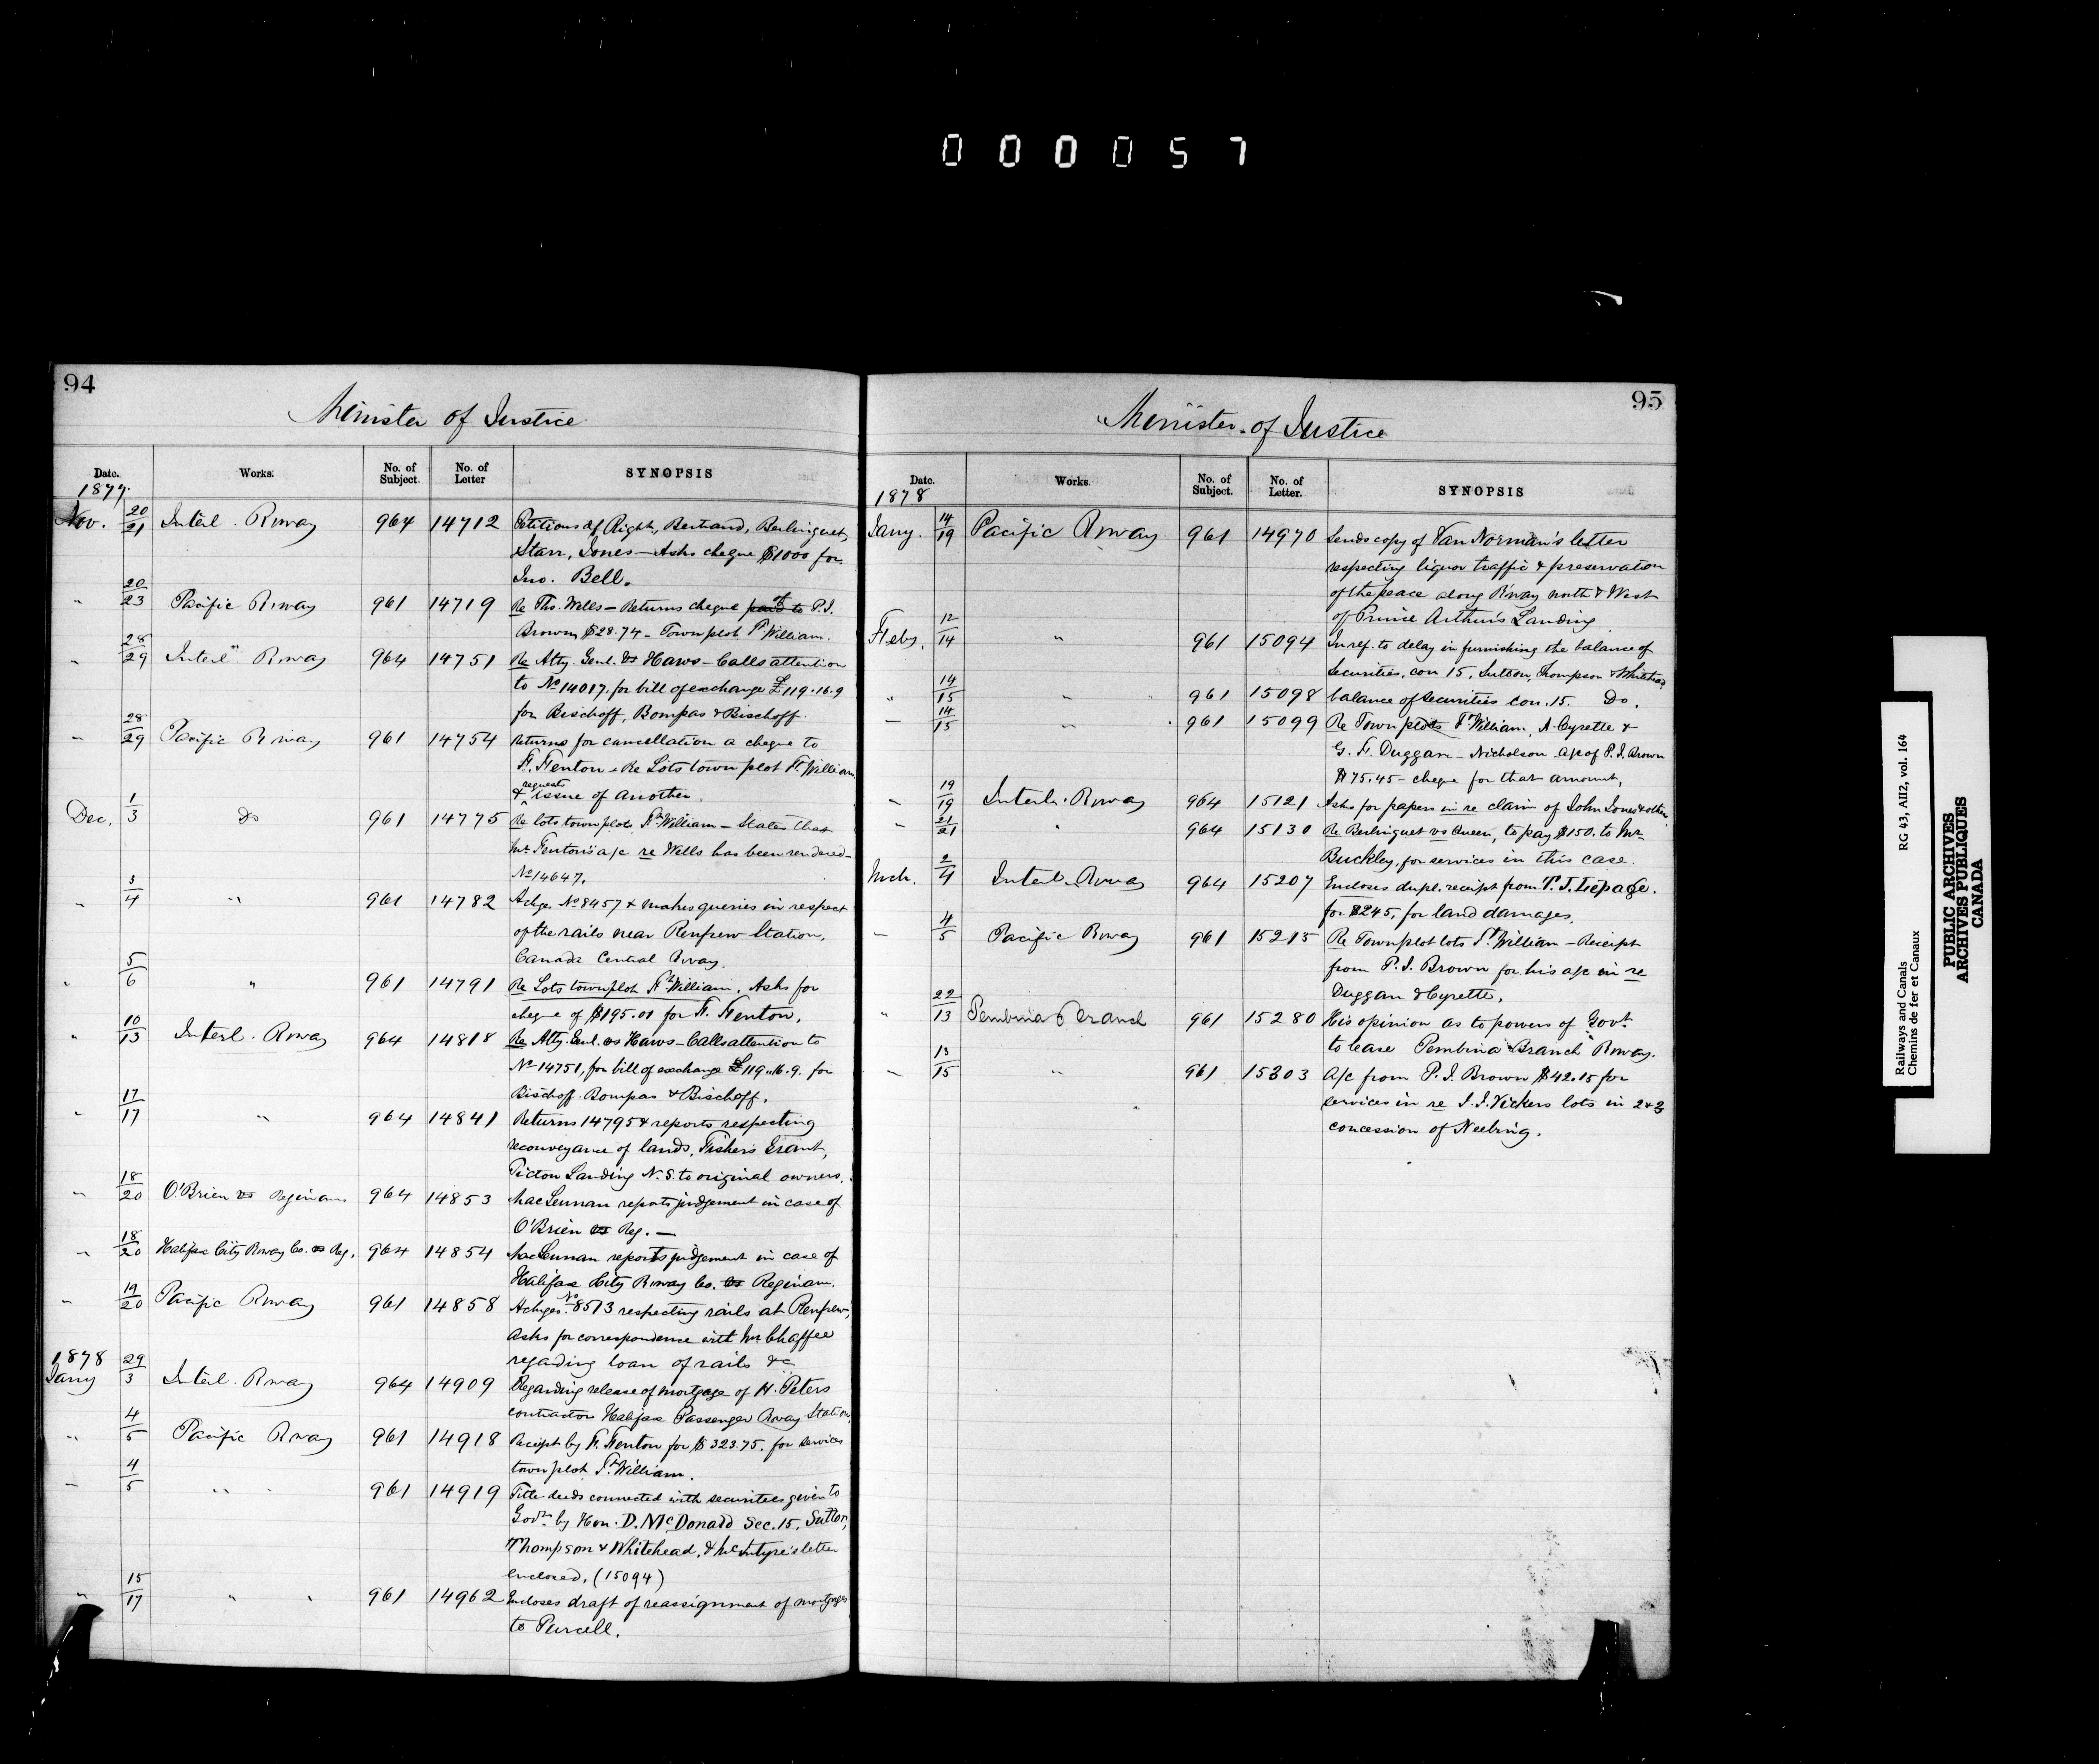 0 0 0 0 5 7
94
Minister of Justice
Date. Works. No. of Subject. No. of Letter SYNOPSIS
1877.
Nov. 20/21 Interl. Rway 964 14712 Petitions of Right, Bertrand, Berlinguet,
Starr, Jones — Asks cheque $1000 for
Jno. Bell.
" 20/23 Pacific Rway 961 14719 Re Ths. Wells — Returns cheque to P.J.
Brown $28.74 — Town plot Ft William.
" 28/29 Interl. Rway 964 14751 Re Atty. Genl. vs Haws — Calls attention
to No 14017, for bill of exchange £119.16.9
for Bischoff, Bompas & Bischoff.
" 28/29 Pacific Rway 961 14754 Returns for cancellation a cheque to
F. Fenton & Re Lots town plot Ft William
& requests issue of another.
Dec. 1/3 do 961 14775 Re lots town plot Ft William — States that
Mr. Fenton's a/c re Wells has been rendered —
No 14647.
" 3/4 " 961 14782 Ackgs. No 8457 & makes queries in respect
of the rails near Renfrew Station,
Canada Central Rway.
" 5/6 " 961 14791 Re Lots town plot Ft William. Asks for
cheque of $195.01 for F. Fenton.
" 10/13 Interl. Rway 964 14818 Re Atty. Genl. vs Haws — Calls attention to
No 14751, for bill of exchange £119.16.9. for
Bischoff Bompas & Bischoff.
" 17/17 " 964 14841 Returns 14795 & reports respecting
reconveyance of lands, Fishers Grant,
Pictou Landing N.S. to original owners.
" 18/20 O'Brien vs Reginam 964 14853 MacLennan reports judgement in case of
O'Brien vs Reg. —
" 18/20 Halifax City Rway Co. vs Reg. 964 14854 MacLennan reports judgement in case of
Halifax City Rway Co. vs Reginam.
" 19/20 Pacific Rway 961 14858 Ackges. No 8513 respecting rails at Renfrew,
Asks for correspondence with Mr Chaffee
regarding loan of rails &c
1878
Jany 29/3 Interl. Rway 964 14909 Regarding release of mortgage of H. Peters
contractor Halifax Passenger Rway Station
" 4/5 Pacific Rway 961 14918 Receipt by F. Fenton for $323.75. for services
town plot Ft William.
" 4/5 " 961 14919 Title deeds connected with securities given to
Govt. by Hon. D. McDonald Sec. 15, Sutton,
Thompson & Whitehead, & McIntyre's letter
enclosed, (15094)
" 15/17 " " 961 14962 Encloses draft of reassignment of mortgages
to Purcell.
95
Minister of Justice
Date. Works. No. of Subject. No. of Letter. SYNOPSIS
1878
Jany. 14/19 Pacific Rway 961 14970 Sends copy of Van Norman's letter
respecting liquor traffic & preservation
of the peace along R'way north & West
of Prince Arthur's Landing
Feby. 12/14 " 961 15094 In ref. to delay in furnishing the balance of
Securities, con 15, Sutton, Thompson & Whitehead
" 14/15 " 961 15098 balance of securities con. 15. Do.
" 14/15 " 961 15099 Re Town plots Ft William, A. Cyrette &
G. F. Duggan — Nicholson a/c of P.J. Brown
$75.45 — cheque for that amount,
" 19/19 Interl. Rway 964 15121 Asks for papers in re claim of John Jones & others
" 21/21 " 964 15130 Re Berlinguet vs Queen, to pay $150. to Mr
Buckley, for services in this case.
Mch. 2/4 Interl. Rway 964 15207 Encloses dupl. receipt from T. J. Lepage.
for $245, for land damages.
" 4/5 Pacific Rway 961 15215 Re Town plot lots Ft William — Receipt
from P.J. Brown for his a/c in re
Duggan & Cyrette.
" 22/13 Pembina Branch 961 15280 His opinion as to powers of Govt
to lease Pembina Branch Rway.
" 13/15 " 961 15303 A/c from P.J. Brown $42.15 for
services in re J.J. Vickers lots in 2 & 3
concession of Neebing.
Railways and Canals RG 43, AII2, vol. 164
Chemins de fer et Canaux
PUBLIC ARCHIVES
ARCHIVES PUBLIQUES
CANADA